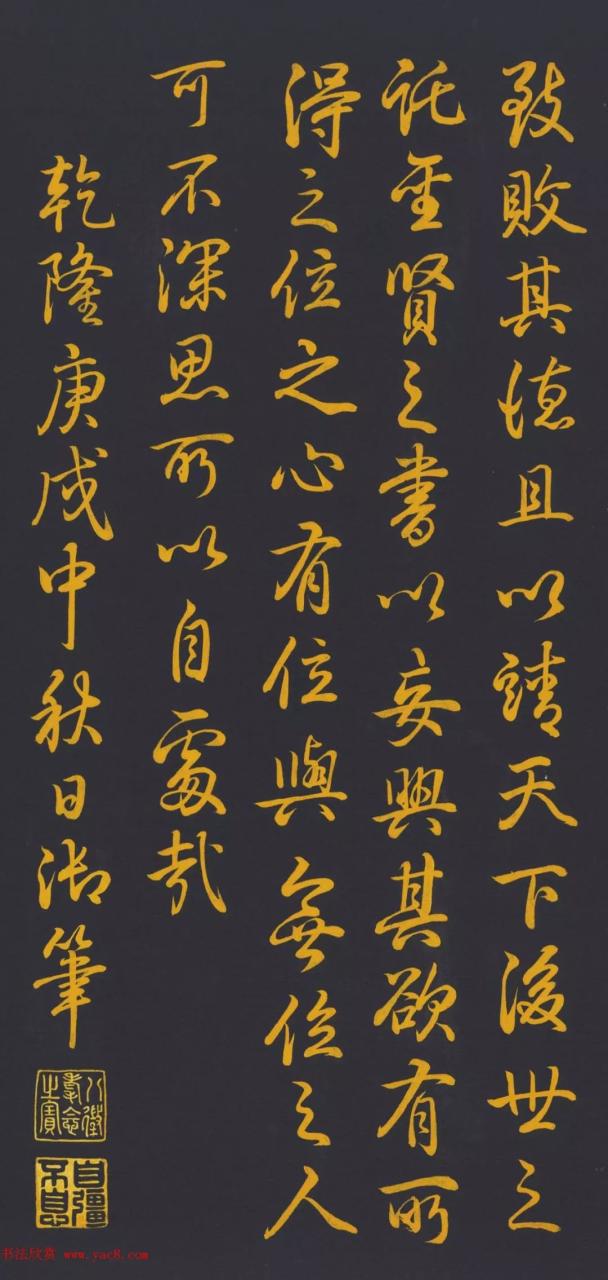 致敗其德且以靖天下後世之
託聖賢之書以妄興其欲有所
得之位之心有位與無位之人
可不深思所以自處哉
乾隆庚戌中秋日御筆
八徵耄念之寶
自彊不息
书法欣赏 www.yac8.com